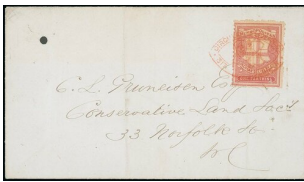 C. L. Gruneisen Esq
Conservative Land Socy
33 Norfolk St.
W C